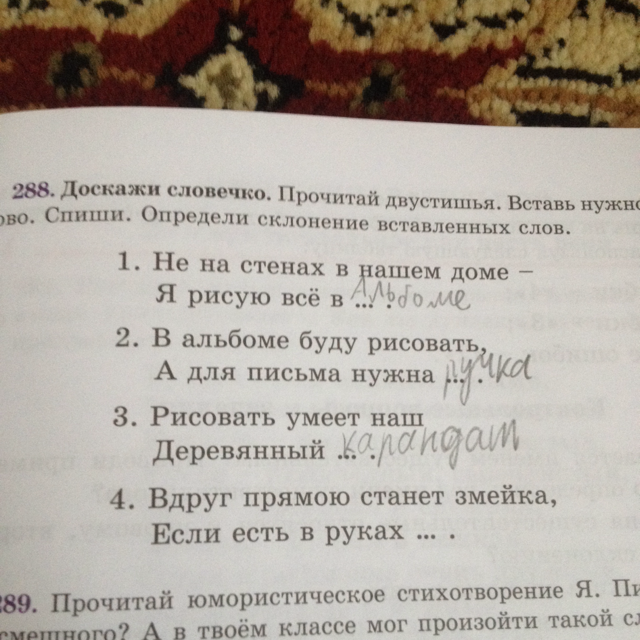 288. Доскажи словечко. Прочитай двустишья. Вставь нужно
ово. Спиши. Определи склонение вставленных слов.
1. Не на стенах в нашем доме –
Я рисую всё в ... . Альбоме
2. В альбоме буду рисовать,
А для письма нужна ... . ручка
3. Рисовать умеет наш
Деревянный ... . карандаш
4. Вдруг прямою станет змейка,
Если есть в руках ... .
289. Прочитай юмористическое стихотворение Я. Пи
смешного? А в твоём классе мог произойти такой сл